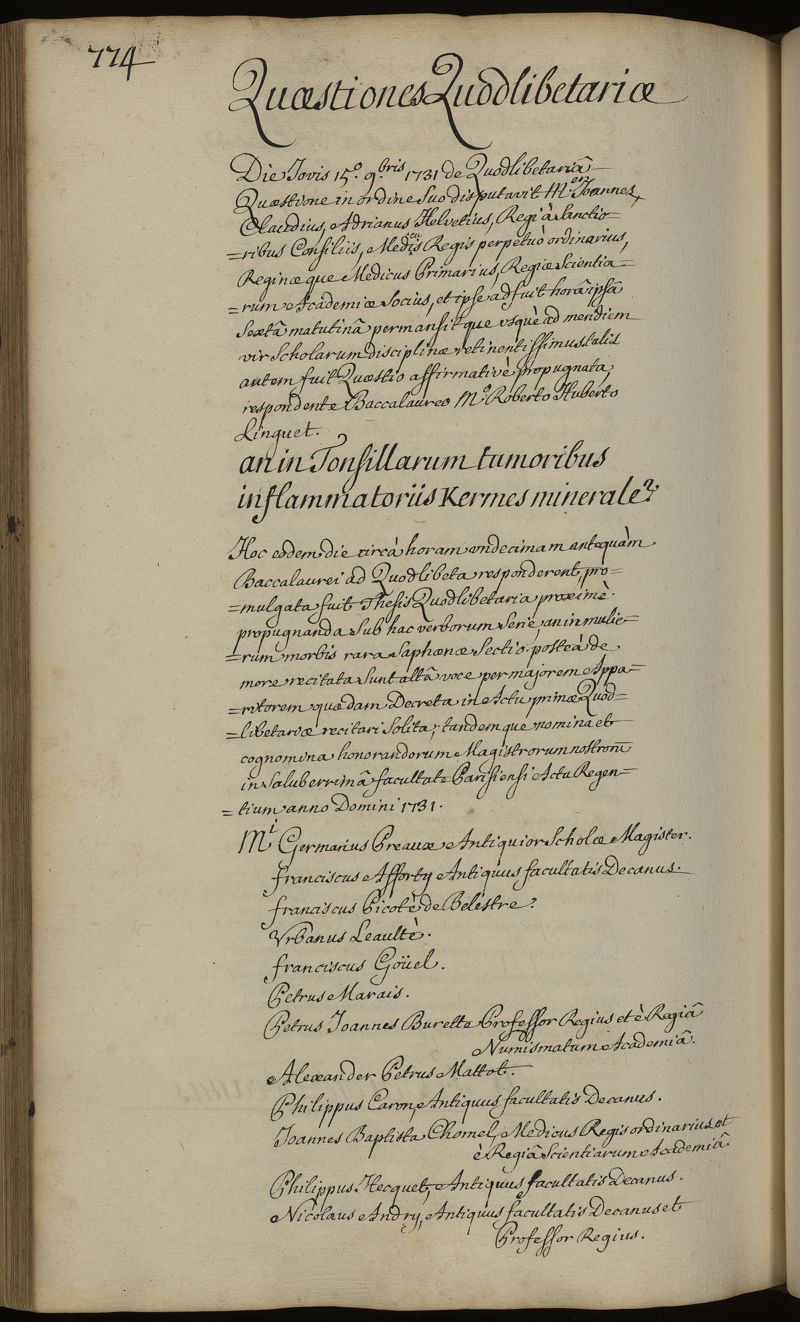 774
Quæstiones Quodlibetariæ
Die Jovis 15.° 9.bris 1731 de Quodlibetariâ
Quæstione in ordine suo disputavit M.er Joannes,
Claudius, Adrianus Helvetius, Regi à sanctio=
=ribus Consiliis, Medicus Regis perpetuò ordinarius,
Reginæque Medicus Primarius, Regiæ Scientia=
=rum Academiæ Socius, et ipse adfuit horâ ipsâ
Sextâ matutinâ permansitque usquè ad meridiem
vir Scholarum disciplinæ retinentissimus talis
autem fuit Quæstio affirmativè propugnata,
respondente Baccalaureo M.° Roberto Huberto
Linguet.
an in Tonsillarum tumoribus
inflammatoriis Kermes minerale?
Hoc eodem die circà horam undecimam antequàm
Baccalaurei ad Quodlibeta responderent, pro=
=mulgata fuit Thesis Quodlibetaria proximè
propugnanda sub hac verborum serie, an in mulie=
=rum morbis rara saphænæ Sectio. posteà de
more recitata sunt altâ voce per majorem Appa=
=ritorem quædam Decreta in Actu primæ Quod=
=libetariæ recitari solita; tandemque nomina et
cognomina honorandorum Magistrorum nostrorū
in saluberrimâ facultate Parisiensi Actu Regen=
=tium anno Domini 1731.
M.i Germanus Preaux Antiquior Scholæ Magister.
franciscus Afforty Antiquus facultatis Decanus.
franciscus Picoté de Belestre?
Urbanus Leaulté.
franciscus Goüel.
Petrus Marais.
Petrus Joannes Burette Professor Regius et è Regiâ
Numismatum Academiâ.
Alexander Petrus Mattot.
Philippus Caron, Antiquus facultatis Decanus.
Joannes Baptista Chomel, Medicus Regis ordinarius et
è Regiâ Scientiarum Academiâ.
Philippus Hecquet, Antiquus facultatis Decanus.
Nicolaus Andry, Antiquus facultatis Decanus et
Professor Regius.